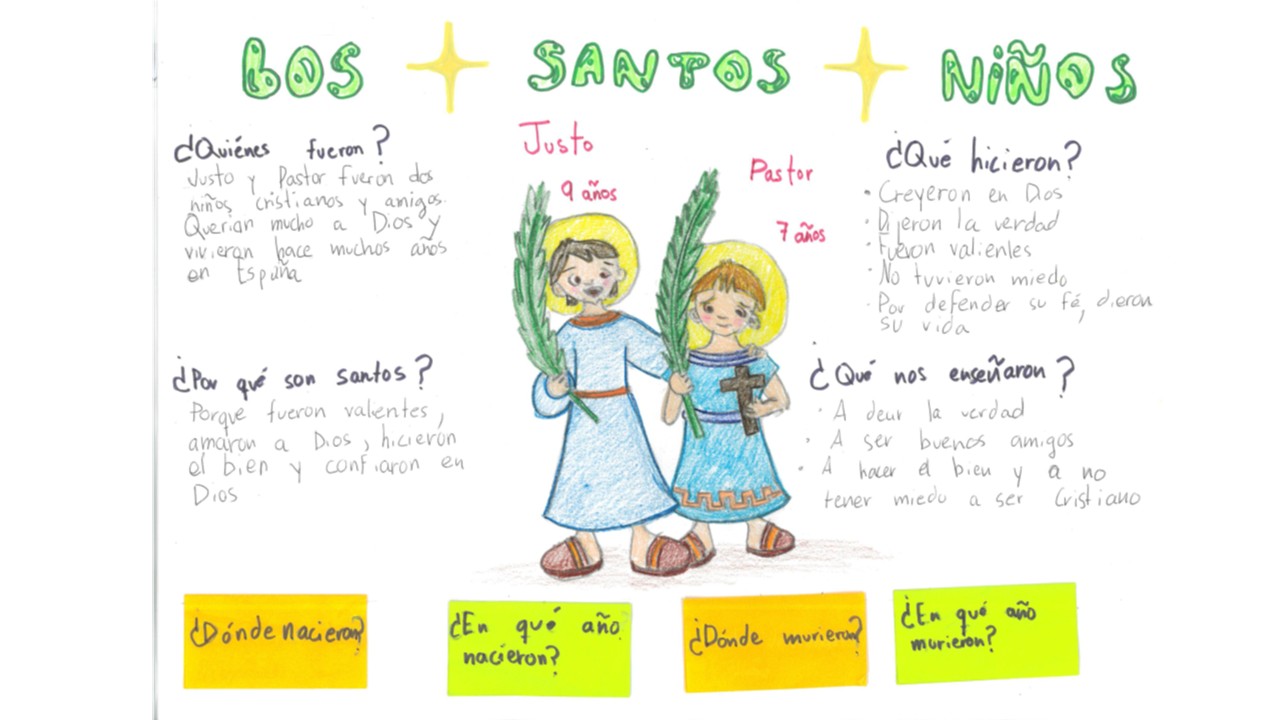 LOS SANTOS NIÑOS
¿Quiénes fueron?
Justo y Pastor fueron dos
niños cristianos y amigos.
Querian mucho a Dios y
vivieron hace muchos años
en España
¿Por qué son santos?
Porque fueron valientes,
amaron a Dios, hicieron
el bien y confiaron en
Dios
Justo
9 años
Pastor
7 años
¿Qué hicieron?
• Creyeron en Dios
• Dijeron la verdad
• Fueron valientes
• No tuvieron miedo
• Por defender su fé, dieron
su vida
¿Qué nos enseñaron?
• A decir la verdad
• A ser buenos amigos
• A hacer el bien y a no
tener miedo a ser Cristiano
¿Dónde nacieron?
¿En qué año
nacieron?
¿Dónde murieron?
¿En qué año
murieron?